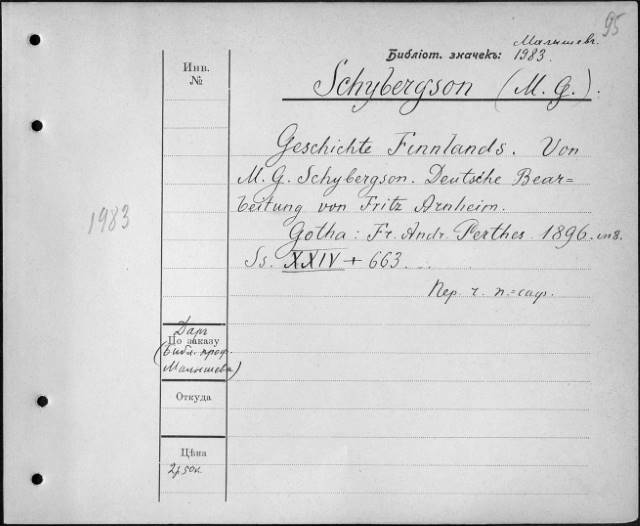 95
Малышевъ.
Библіот. значекъ: 1983.
Инв.
№
Schybergson (M. G.).
Geschichte Finnlands. Von
M. G. Schybergson. Deutsche Bear=
beitung von Fritz Arnheim.
1983
Gotha: Fr. Andr. Perthes 1896. in 8.
Ss. XXIV + 663.
Пер. ч. п.=саф.
Даръ
По заказу
(Библ. проф.
Малышева)
Откуда
Цѣна
2р50к